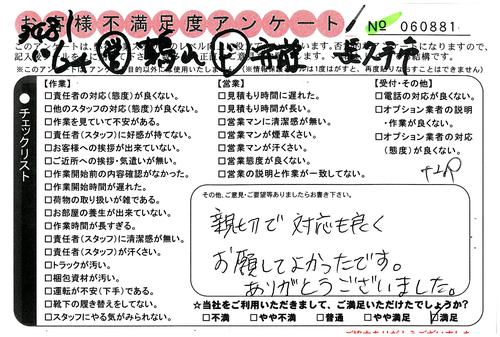 お客様不満足度アンケート
№ 060881
チェックリスト
【作業】
□責任者の対応(態度)が良くない。
□他のスタッフの対応(態度)が良くない。
□作業を見ていて不安がある。
□責任者(スタッフ)に好感が持てない。
□お客様への挨拶が出来ていない。
□ご近所への挨拶・気遣いが無い。
□作業開始前の内容確認がなかった。
□作業開始時間が遅れた。
□荷物の取り扱いが雑である。
□お部屋の養生が出来ていない。
□作業時間が長すぎる。
□責任者(スタッフ)に清潔感が無い。
□責任者(スタッフ)が汗くさい。
□トラックが汚い。
□梱包資材が汚い。
□運転が不安(下手)である。
□靴下の履き替えをしてない。
□スタッフにやる気がみられない。
【営業】
□見積もり時間に遅れた。
□見積もり時間が長い。
□営業マンに清潔感が無い。
□営業マンが煙草くさい。
□営業マンが汗くさい。
□営業態度が良くない。
□営業の説明と作業が一致してない。
【受付・その他】
□電話の対応が良くない。
□オプション業者の説明
・作業が良くない。
□オプション業者の対応
(態度)が良くない。
その他、ご意見・ご要望等ありましたらお書き下さい。
親切で 対応も良く
お願してよかったです。
ありがとうございました。
☆当社をご利用いただきまして、ご満足いただけたでしょうか?
□不満 □やや不満 □普通 □やや満足 ☑満足